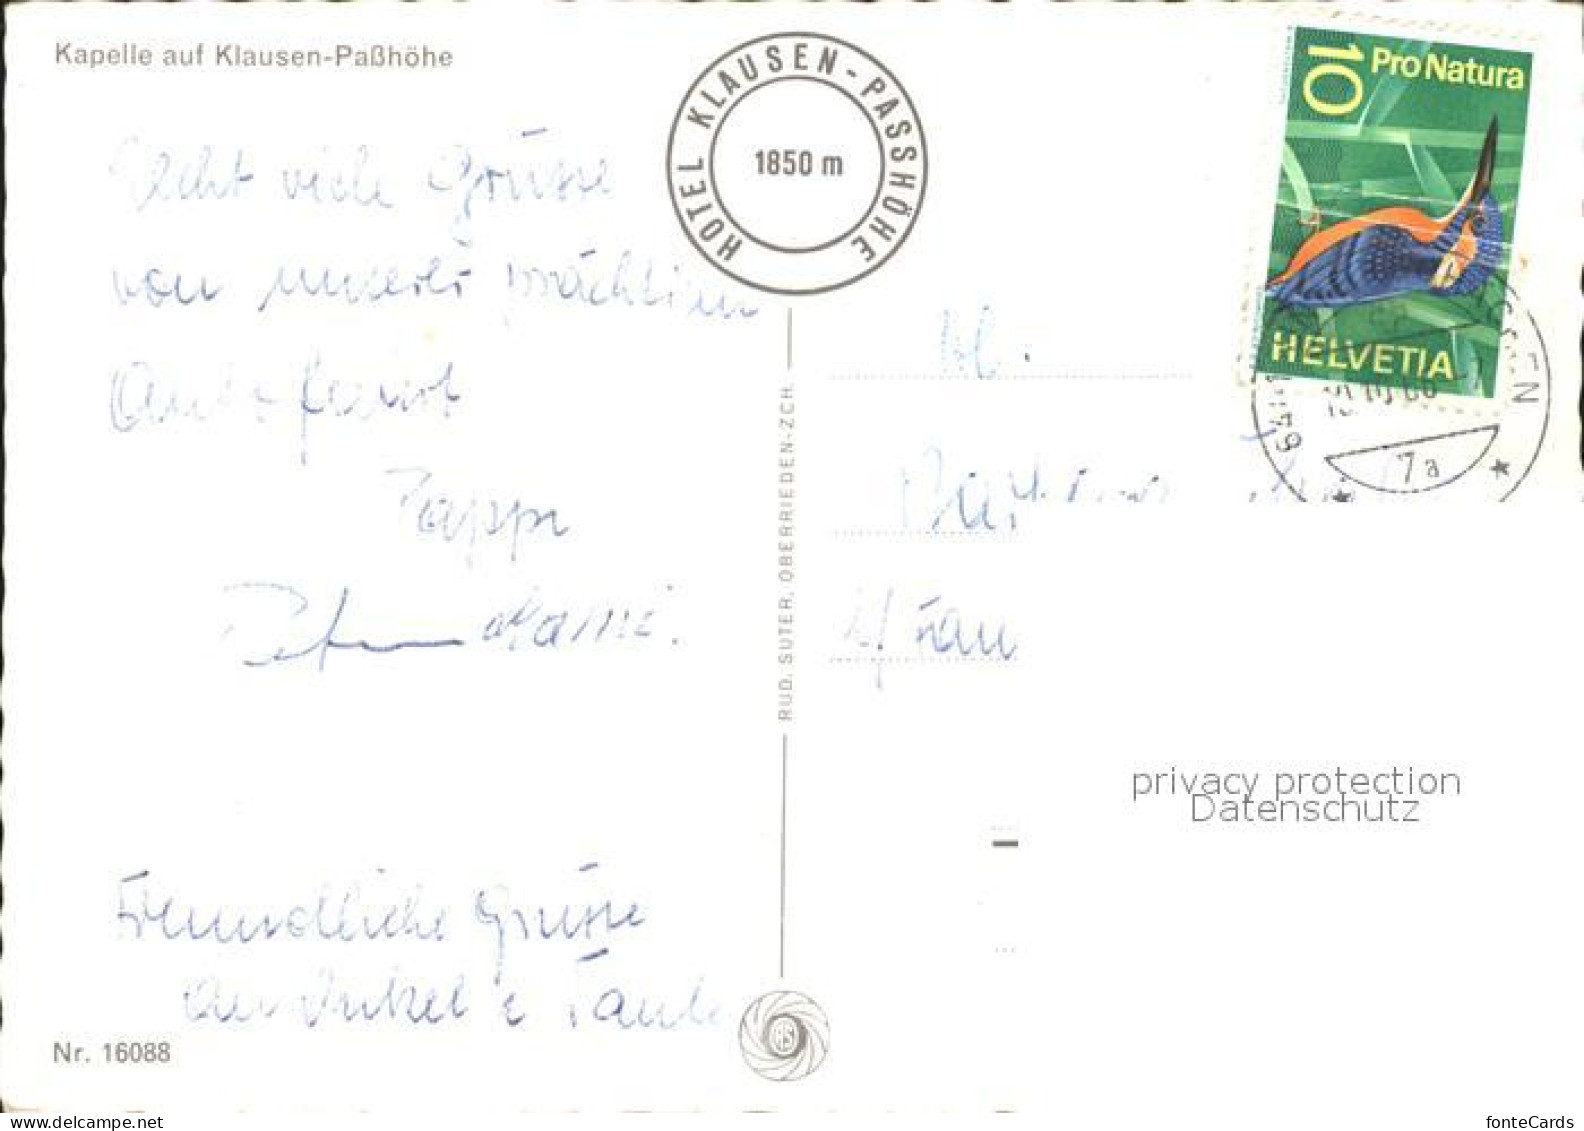 Kapelle auf Klausen-Paßhöhe
HOTEL KLAUSEN-PASSHÖHE
1850 m
10 Pro Natura
HELVETIA
7a
Recht viele Grüsse
von unserer prächtigen
Autofahrt
Pappi
Peter Mami.
Freundliche Grüsse
an Onkel & Tante
Frau
RUD. SUTER, OBERRIEDEN-ZCH.
privacy protection
Datenschutz
Nr. 16088
www.ansichtskarten-center.de
fonteCards